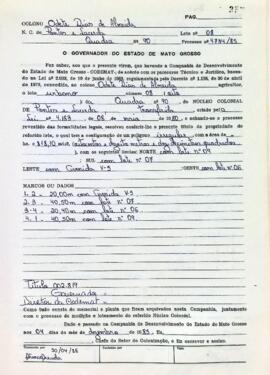 PAG.
COLONO: Odete Dias de Almeida
N. C. de Pontes e Lacerda Lote n.o 08
Quadra n.o 90 Processo n.o 4784/85
O GOVERNADOR DO ESTADO DE MATO GROSSO
Faz saber, aos que a presente virem, que havendo a Companhia de Desenvolvimento
do Estado de Mato Grosso - CODEMAT, de acordo com os pareceres Técnico e Jurídico, basea-
dos na Lei nº 2.028, de 19 de junho de 1963, regulamentada pelo Decreto nº 1.138, de 20 de abril
de 1970, concedido, ao colono Odete Dias de Almeida
agricultor, o lote urbano número 08 (oito)
da Quadra nº 90 do NÚCLEO COLONIAL
de Pontes e Lacerda criado pela
Lei nº 4.168 de 08 de maio de 1980
revestido das formalidades legais, resolveu conferir-lhe o presente título de propriedade do
referido lote, o qual tem a configuração de um polígono irregular com a área de
com os seguintes limites: NORTE com lote nº 09
SUL com lote nº 07
LESTE com Avenida V-3 OESTE com lote nº 06
MARCOS OU DADOS
1-2 - 20,00m com Avenida V-3
2-3 - 40,50m com lote nº 07
3-4 - 20,40m com lote nº 06
4-1 - 40,50m com lote nº 09
Título 002.819
Governador
Diretor da Codemat
Como tudo consta do memorial e planta que ficam arquivados nesta Companhia, juntamente
com o processo de medição e loteamento do referido Núcleo Colonial.
Dado e passado na Companhia de Desenvolvimento do Estado de Mato Grosso
aos 04 dias do mês de dezembro de 1985. Eu,
Chefe do Setor de Colonização, o fiz escrever e assino.
30/04/86